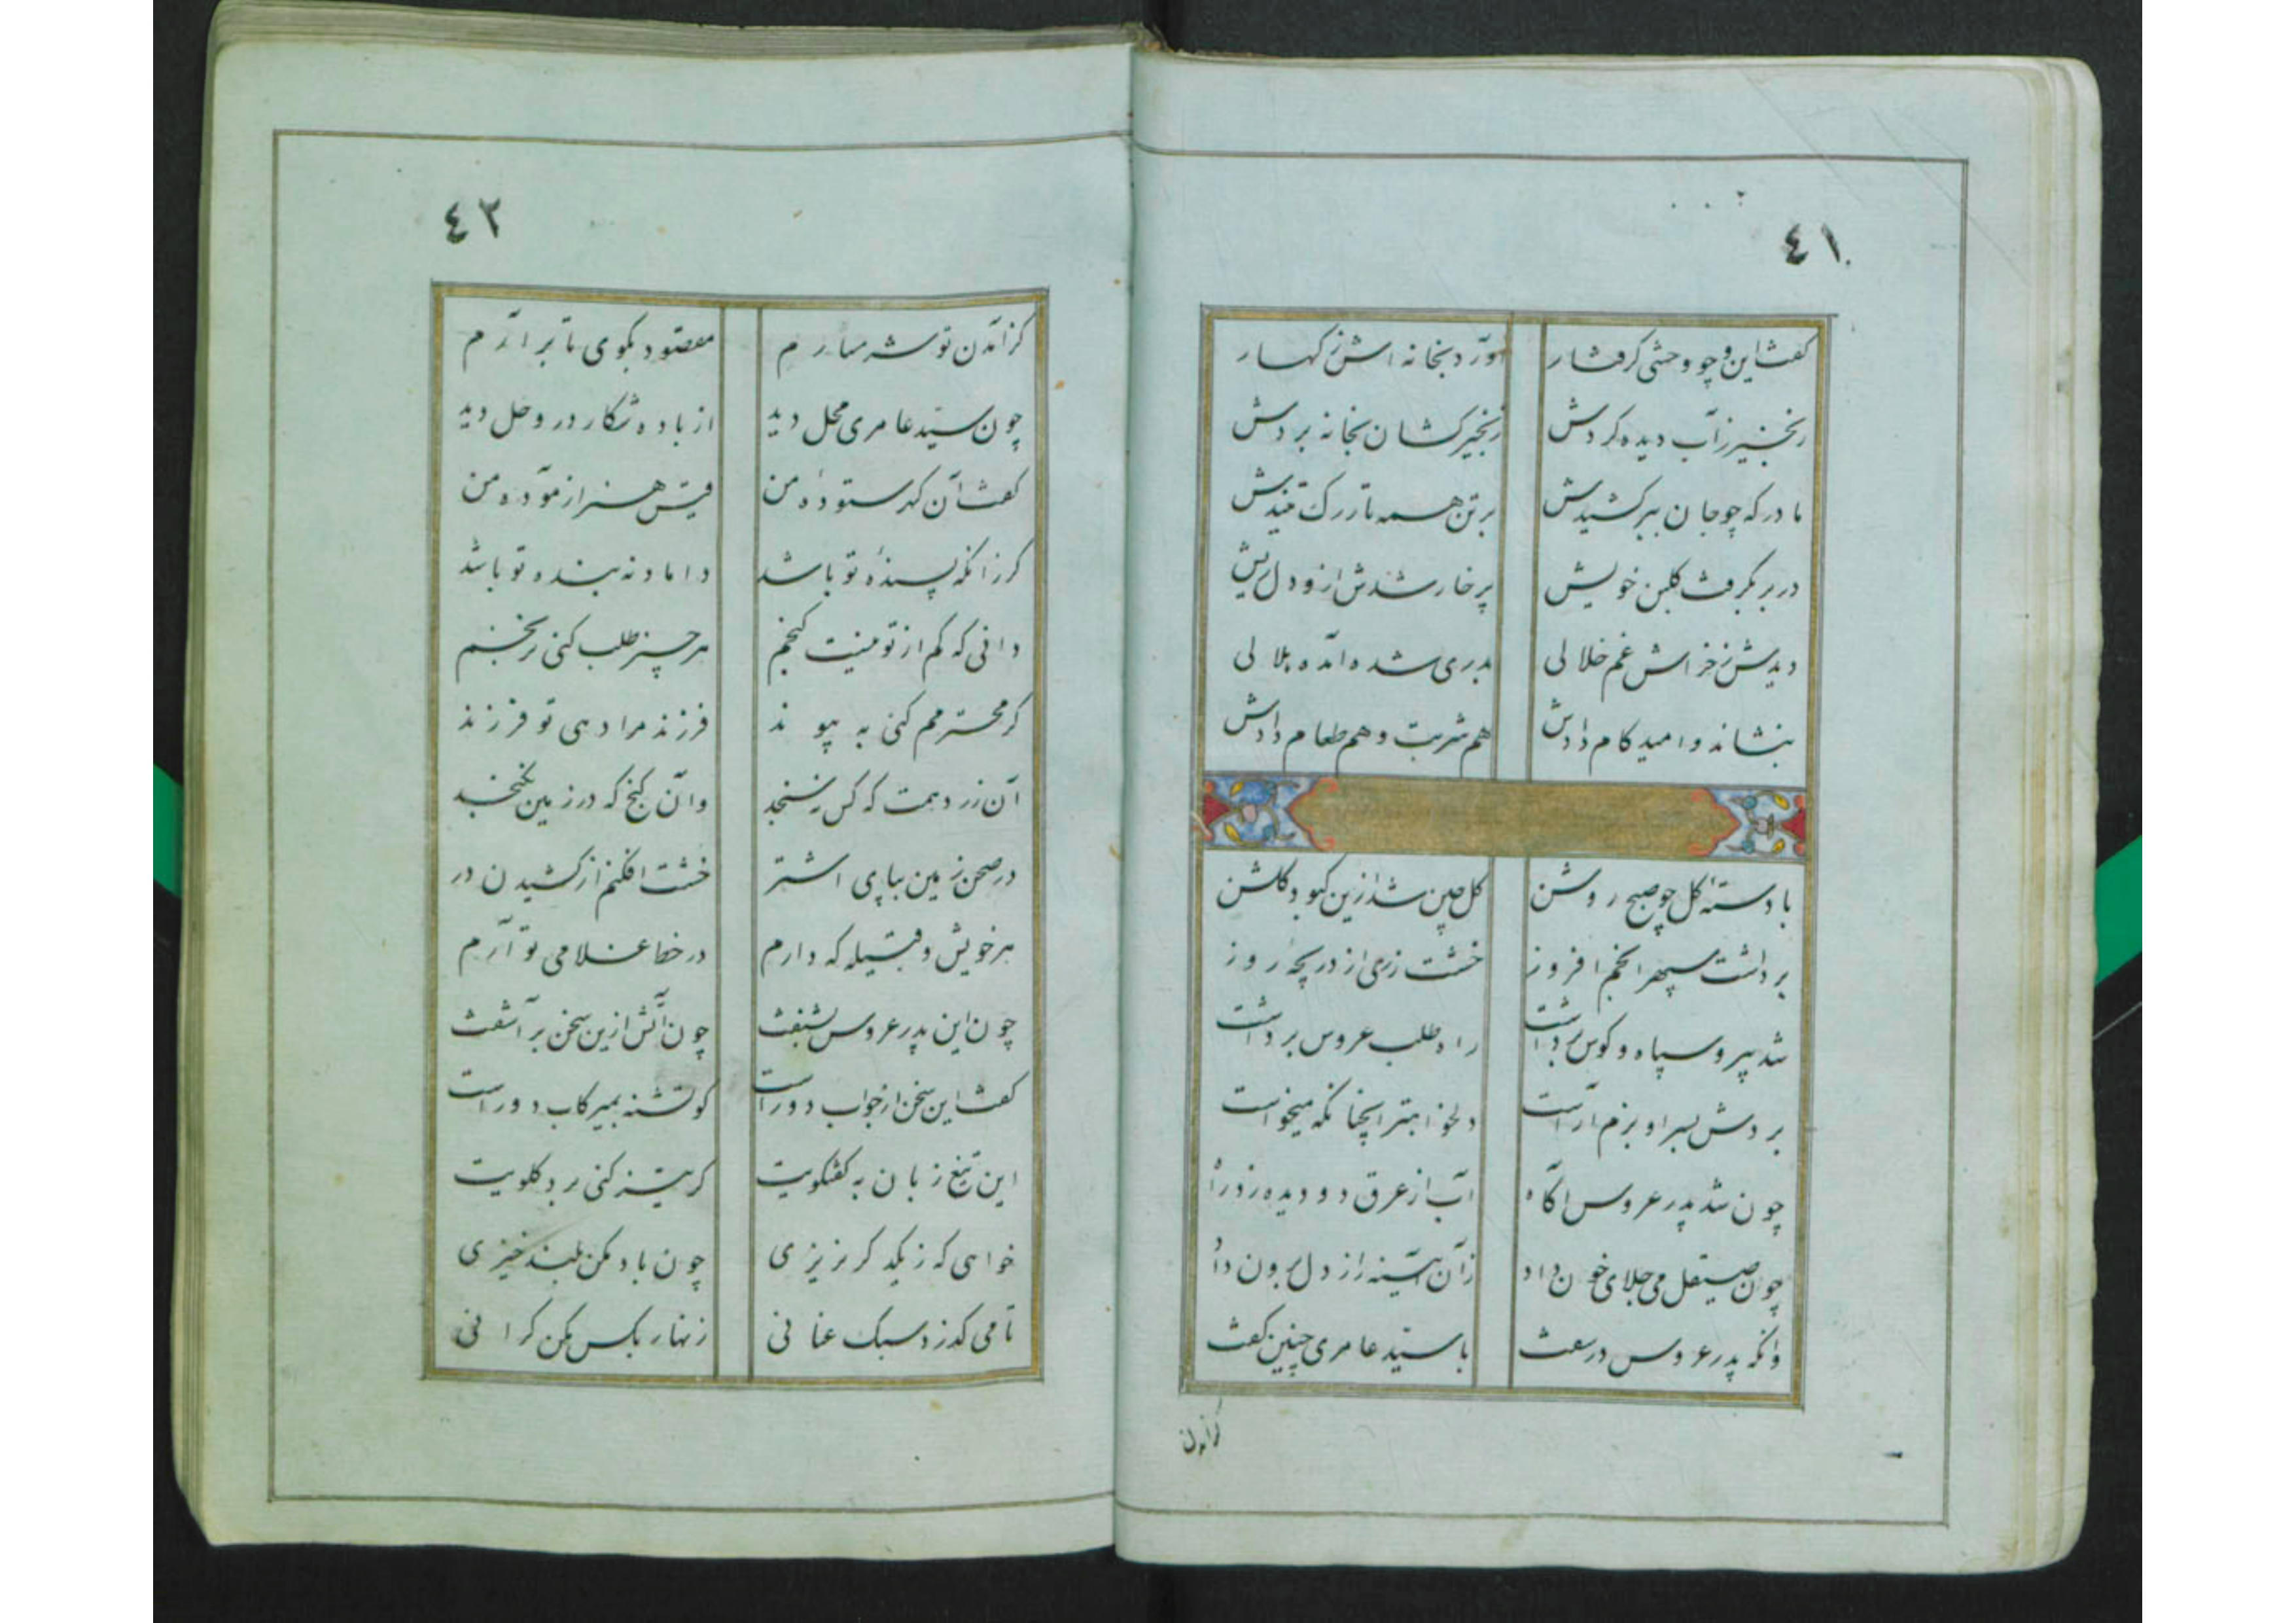 ٤١
گفت این و چو وحشی گرفتار آورد بخانه اش ز کهسار
زنجیر ز آب دیده کردش زنجیر کشان بخانه بردش
مادر که چو جان ببر کشیدش بر تن همه تا رگ تنیدش
در بر بگرفت گلبن خویش پر خار شدش ازو دل ریش
دیدش ز خراش غم خلالی بدری شده آمده هلالی
بنشاند و امید کام دادش هم شربت و هم طعام دادش
با دسته گل چو صبح روشن گل چین شد ازین کبود گلشن
برداشت سپهر انجم افروز خشت زری از دریچه روز
شد پیر و سپاه و کوس برداشت راه طلب عروس برداشت
بردش بسرا و بزم آراست دلخواه تر آنچنانکه میخواست
چون شد پدر عروس آگاه آب از عرق دو دیده زد راه
چون صیقل می جلای خون داد زان آینه راز دل برون داد
وانگه پدر عروس در سفت با سید عامری چنین گفت
کز آمدن
٤٢
کز آمدن تو شرمسارم مقصود بگوی تا برآرم
چون سید عامری محل دید از باده شکار در وحل دید
گفت آن گهر ستوده من قیس هنر آزموده من
گر زانکه پسنده تو باشد داماد نه بنده تو باشد
دانی که کم از تو نیست گنجم هر چیز طلب کنی نرنجم
گر محترمم کنی به پیوند فرزند مرا دهی تو فرزند
آن زر دهمت که کس نسنجد وآن گنج که در زمین نگنجد
در صحن زمین بپای اشتر خشت افکنم از کشیدن در
هر خویش و قبیله که دارم در خط غلامی تو آرم
چون این پدر عروس بشنفت چون آتش ازین سخن برآشفت
گفت این سخن از جواب دور است کو تشنه بمیر کاب دور است
این تیغ زبان به گفتگویت گر تیز کنی برد گلویت
خواهی که ز یکدگر نریزی چون باد مکن بلند خیزی
تا می گذرد سبک عنانی زنهار بکس مکن گرانی